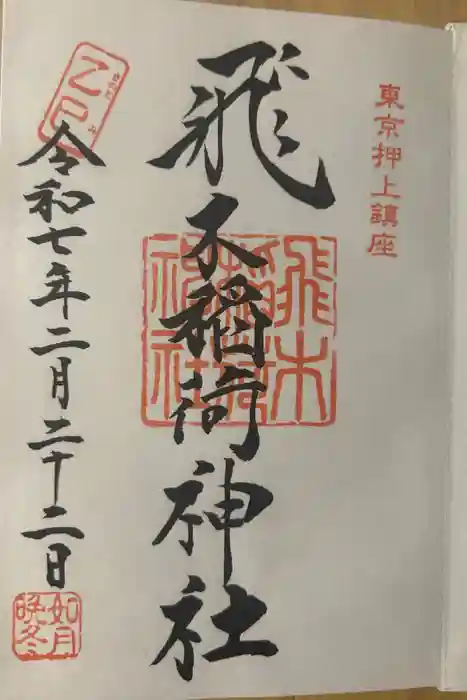 東京押上鎮座
飛木稲荷神社
飛木
稲荷
神社
乙巳
令和七年二月二十二日
如月
晩冬